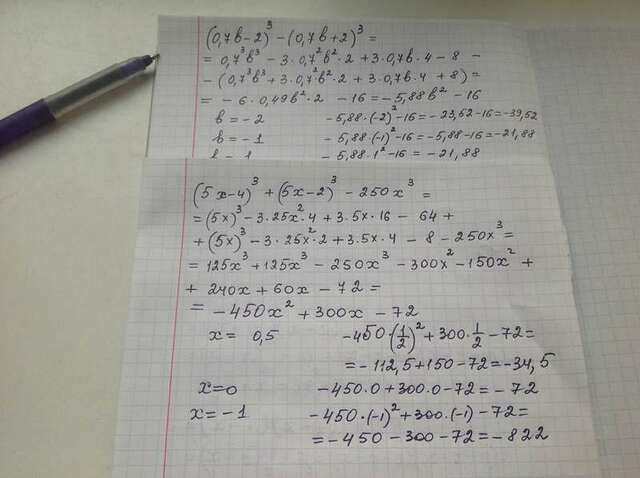 (0,7b-2)³ - (0,7b+2)³ =
= 0,7³b³ - 3·0,7²b²·2 + 3·0,7b·4 - 8 -
- (0,7³b³ + 3·0,7²b²·2 + 3·0,7b·4 + 8) =
= - 6·0,49b²·2 - 16 = -5,88b² - 16
b = -2 - 5,88·(-2)² - 16 = - 23,52 - 16 = -39,52
b = -1 - 5,88·(-1)² - 16 = - 5,88 - 16 = -21,88
b = 1 - 5,88·1² - 16 = - 21,88
(5x-4)³ + (5x-2)³ - 250x³ =
= (5x)³ - 3·25x²·4 + 3·5x·16 - 64 +
+ (5x)³ - 3·25x²·2 + 3·5x·4 - 8 - 250x³ =
= 125x³ + 125x³ - 250x³ - 300x² - 150x² +
+ 240x + 60x - 72 =
= - 450x² + 300x - 72
x = 0,5 -450·(1/2)² + 300·1/2 - 72 =
= - 112,5 + 150 - 72 = -34,5
x = 0 - 450·0 + 300·0 - 72 = - 72
x = - 1 - 450·(-1)² + 300·(-1) - 72 =
= - 450 - 300 - 72 = - 822